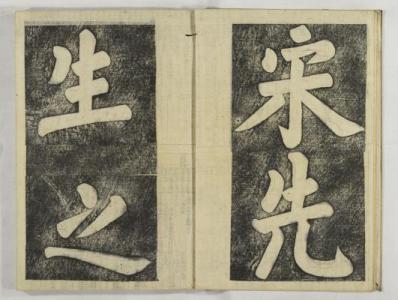 宋先
生之